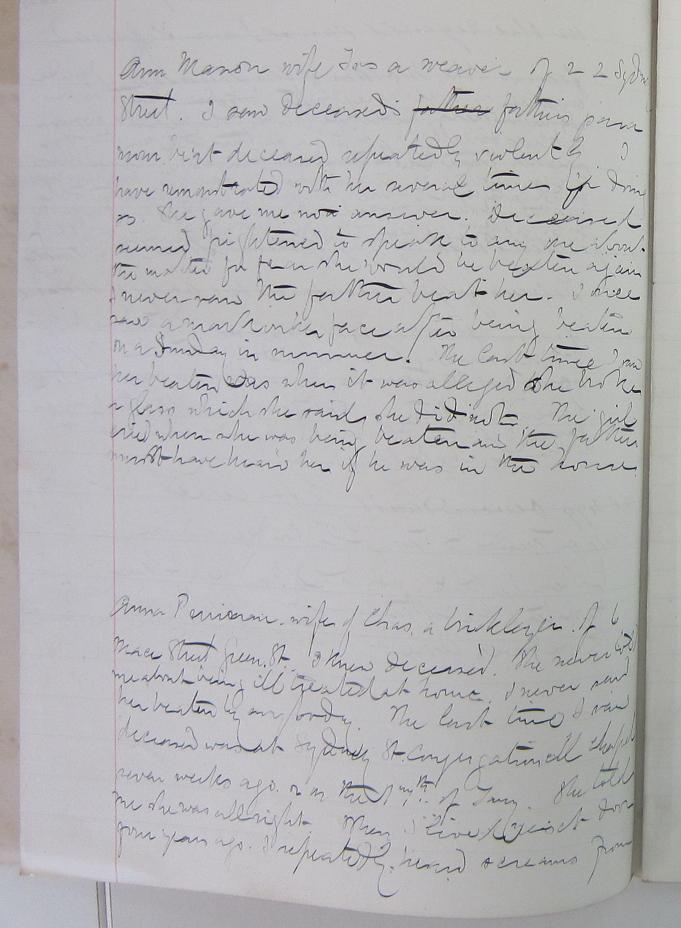 Ann Mason wife Jos a weaver of 22 Sydney
Street. I saw deceased's father for this
beat deceased repeatedly violently I
have remonstrated with her several times for doing
so. She gave me no answer. Deceased
seemed frightened to speak to any one about
the matter for fear she would be beaten again
I never saw the father beat her. I once
saw a mark on her face after being beaten
on a Sunday in summer. The last time I saw
her beaten was when it was alleged she broke
a glass which she said she did not. The girl
cried when she was being beaten and the father
must have heard her if he was in the house.
Anna wife of Chas. a bricklayer. of 6
Mace Street Green St. I knew deceased. She never told
me about being ill treated at home. I never saw
her beaten by anybody. The last time I saw
deceased was at Sydney St. Congregational chapel
seven weeks ago. on the of She told
me she was all right. When I lived next door
four years ago. I repeatedly heard screams from